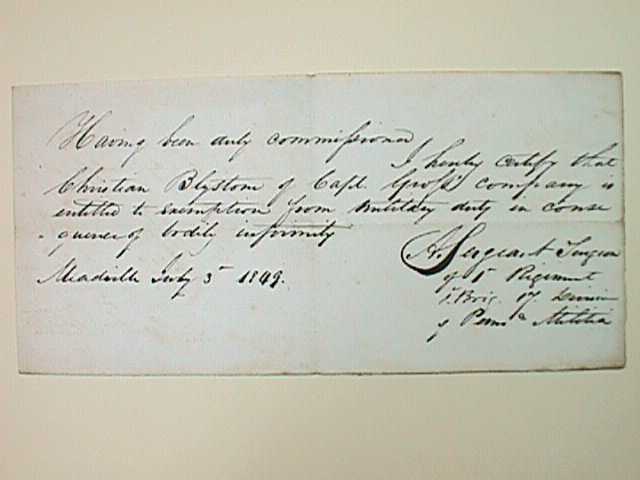 Having been duly commissioned
I hereby certify that
Christian Blystone of Capt. Gross's company is
entitled to exemption from military duty in conse
quence of bodily infirmity
A. Sergeant Surgeon
of 1st Regiment
Brig. 17 Division
of Penna Militia
Meadville July 3d 1849.